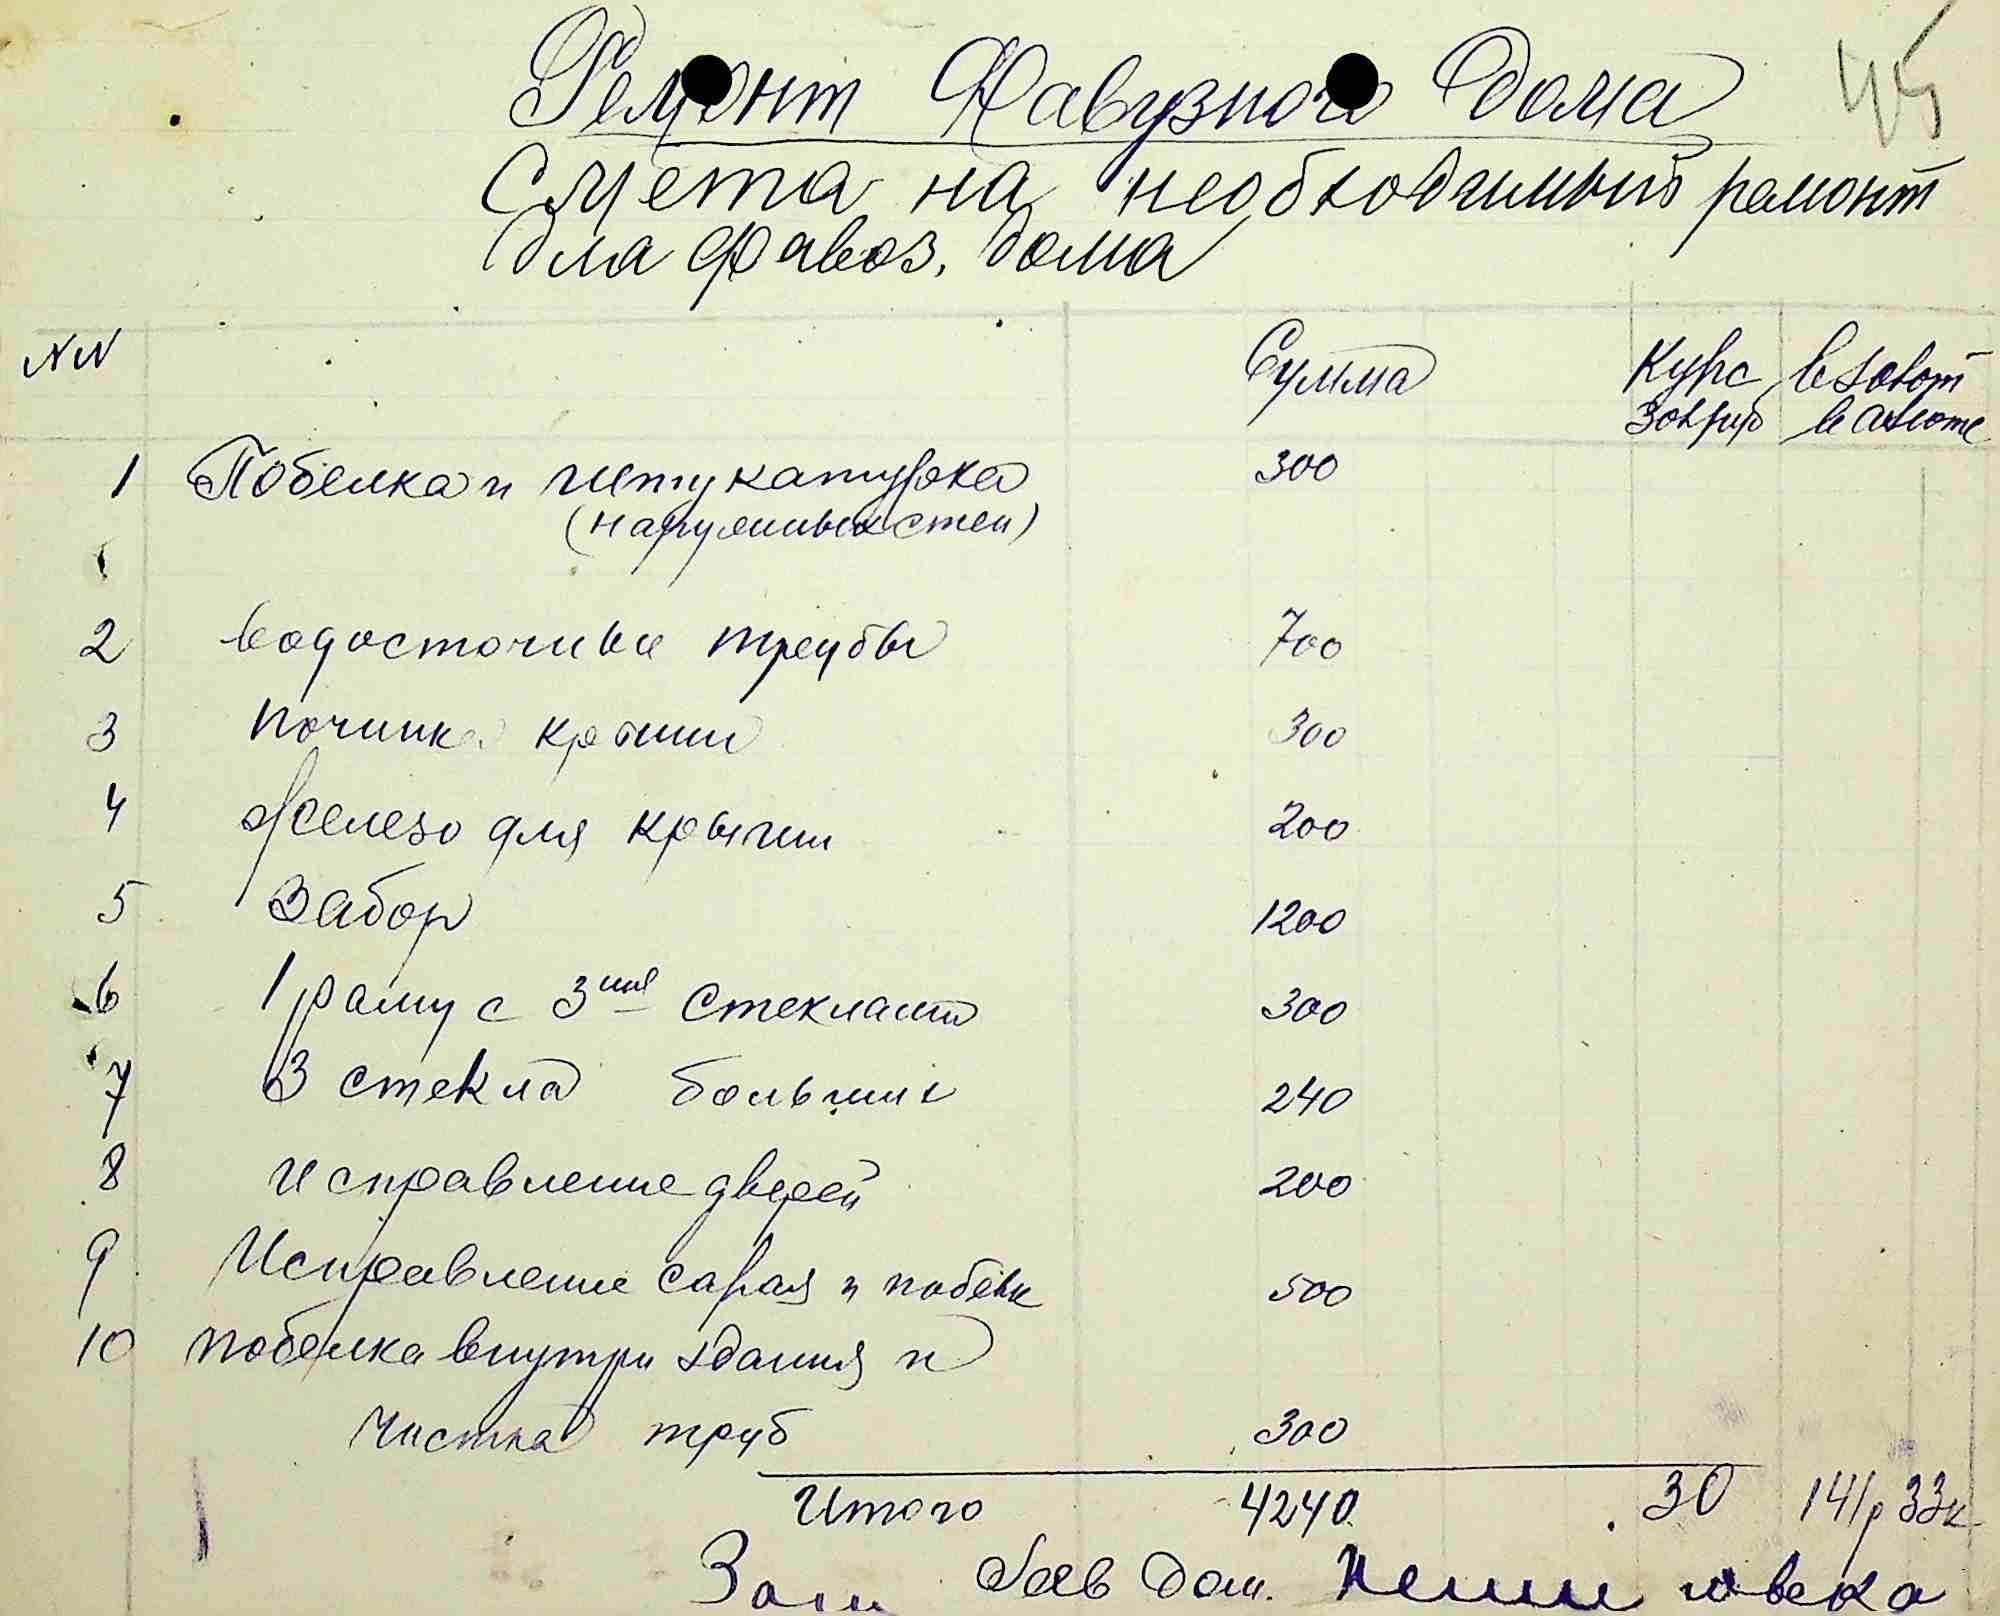 45
Ремонт Фавузного Дома
Смета на необходимый ремонт
для Фавоз. дома
NN Сумма Курс в совет
валюте
1 Побелка и штукатурка 300
(наружных стен)
2 водосточные трубы 700
3 Починка крыши 300
4 Железо для крыши 200
5 Забор 1200
6 1 раму с 3мя стеклами 300
7 3 стекла больших 240
8 Исправление дверей 200
9 Исправление сарая и побелк 500
10 Побелка внутри здания и
Чистка труб 300
Итого 4240 30 141р 33к
Зав дом.